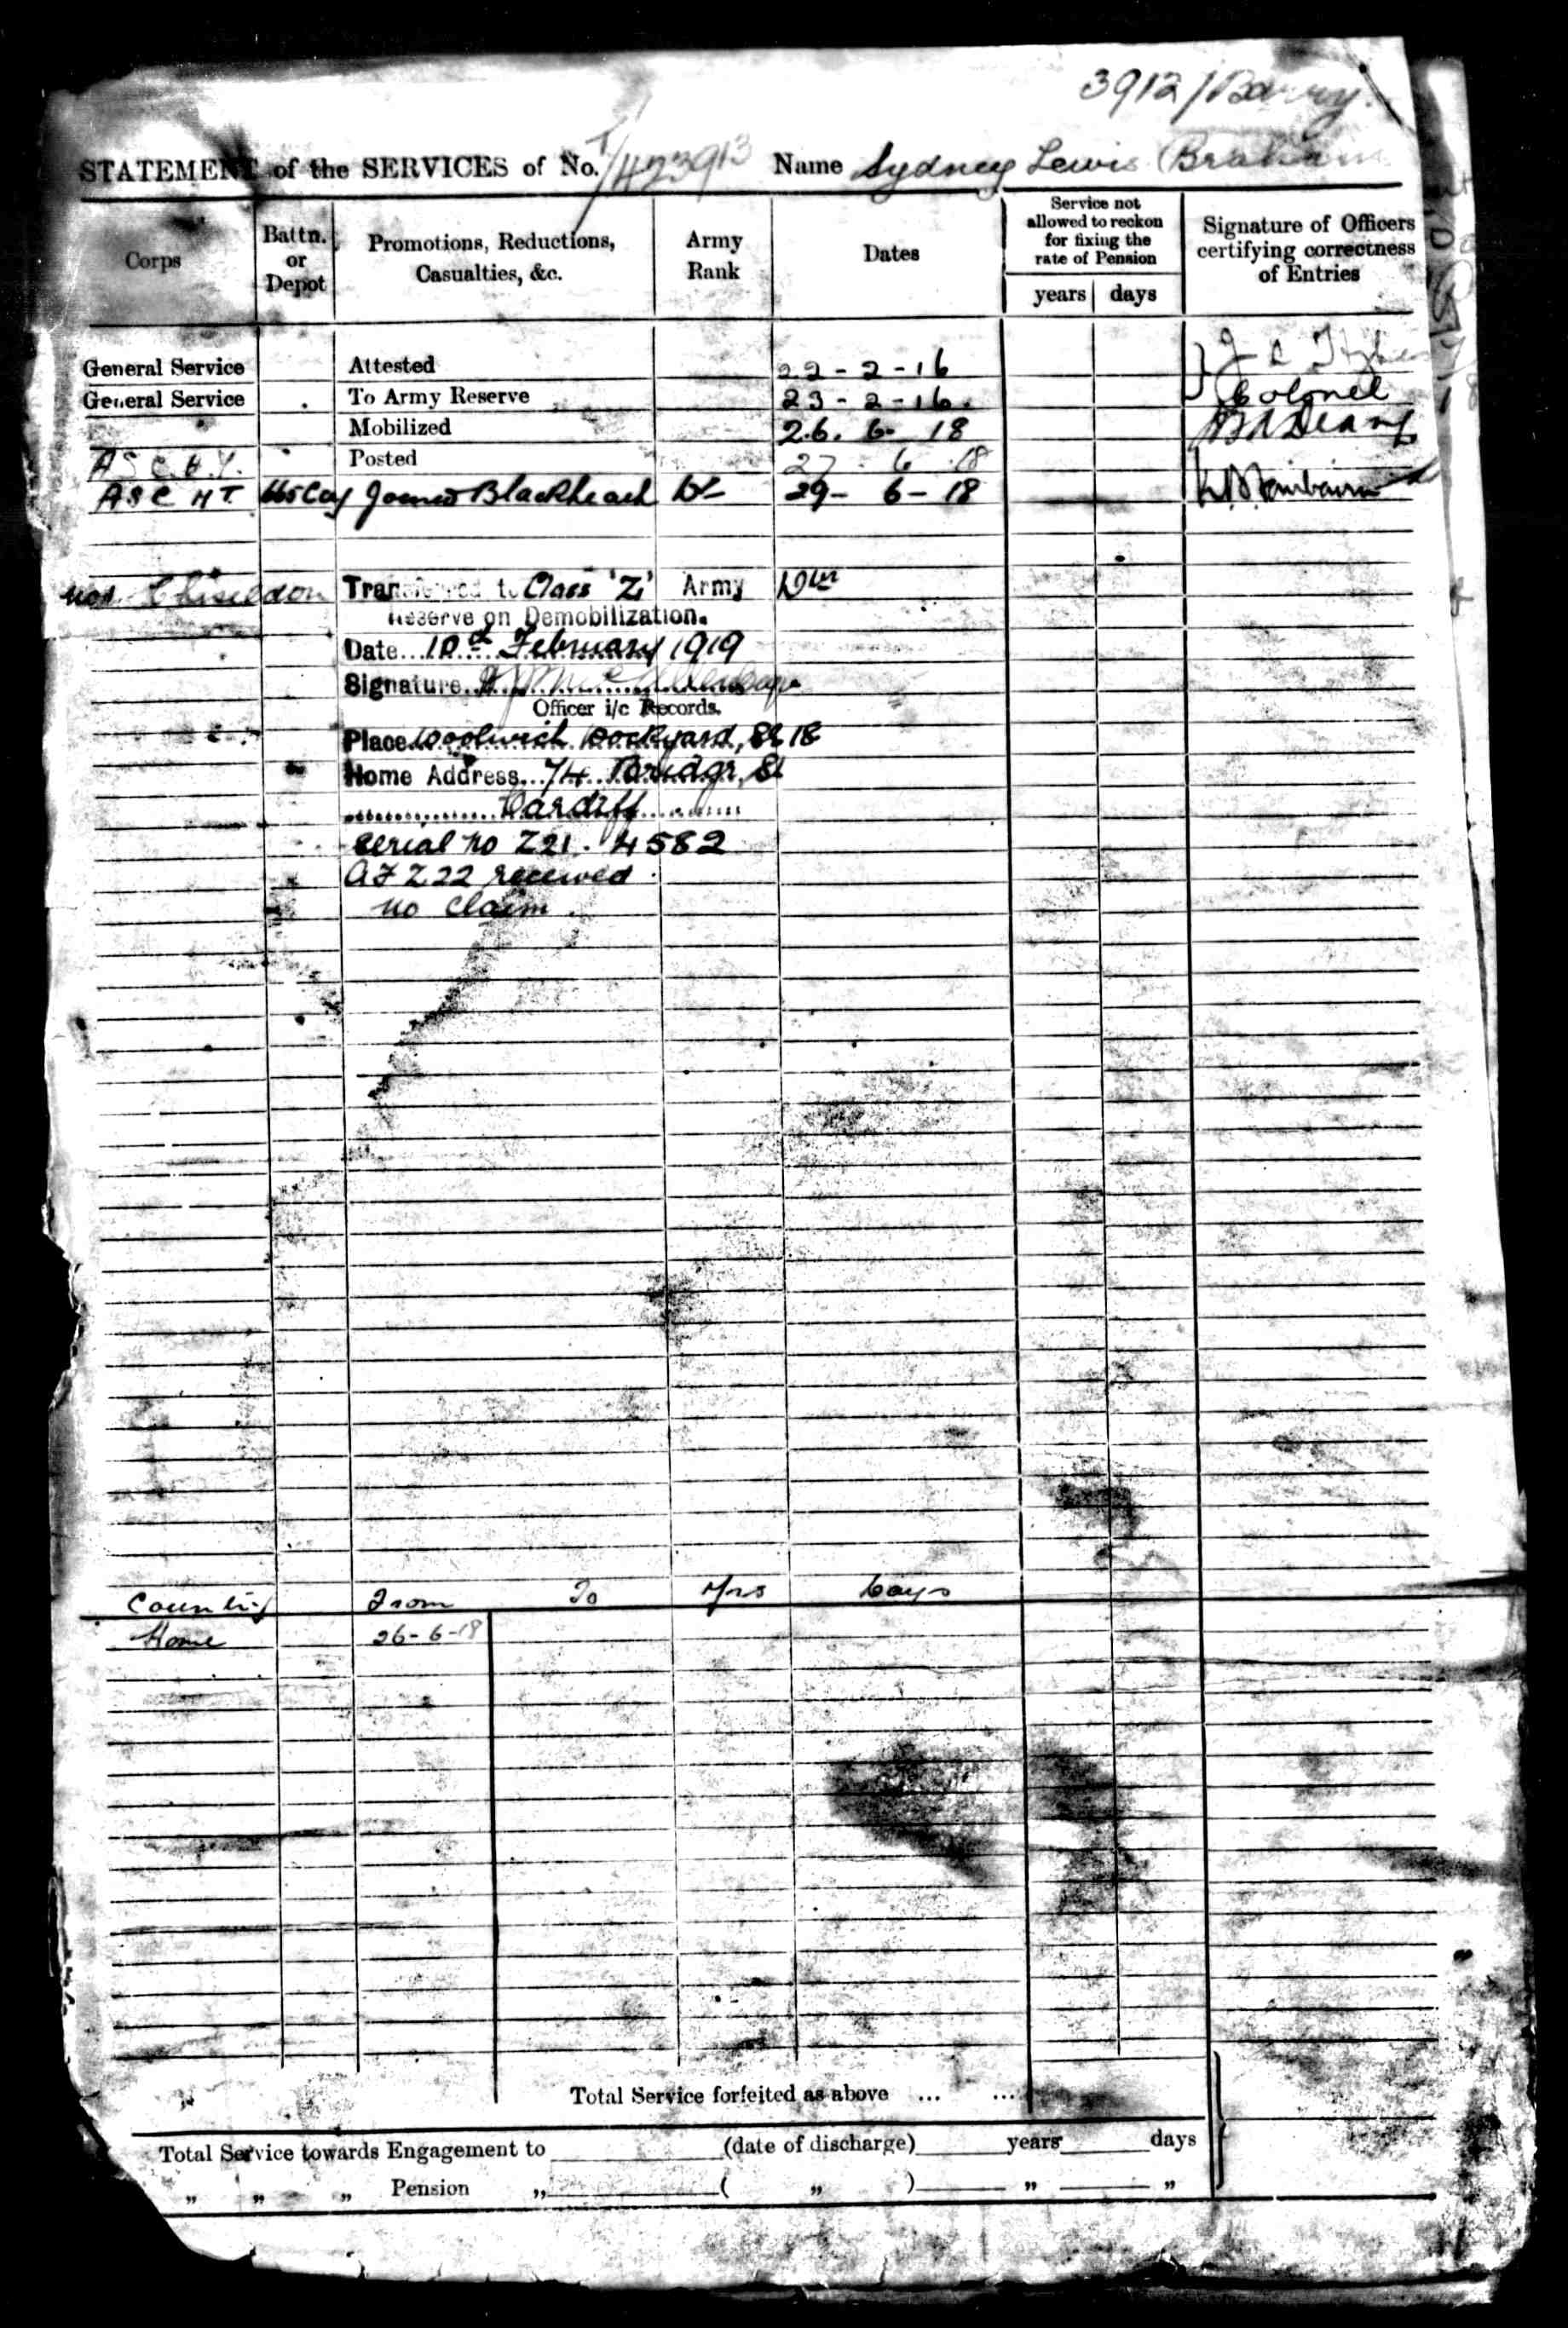 3912/Barry.
STATEMENT of the SERVICES of No. T/423913 Name Sydney Lewis Braham
Corps
Battn. or Depot
Promotions, Reductions, Casualties, &c.
Army Rank
Dates
Service not allowed to reckon for fixing the rate of Pension
years days
Signature of Officers certifying correctness of Entries
General Service Attested 22-2-16
General Service To Army Reserve 23-2-16. Colonel
Mobilized 26. 6- 18
A.S.C. H.T. Posted 27. 6. 18
A S C H T 665 Coy Joined Blackheath Dr 29- 6- 18
Chiseldon Transferred to Class 'Z' Army Dvr
Reserve on Demobilization.
Date 10th February 1919
Signature
Officer i/c Records.
Place Woolwich Dockyard, SE 18
Home Address 74 Bridge St
Cardiff
Serial No Z21. 4582
AF Z 22 received
no claim
Country From To Yrs Days
Home 26-6-18
Total Service forfeited as above ... ...
Total Service towards Engagement to (date of discharge) years days
„ „ „ Pension „ ( „ ) „ „